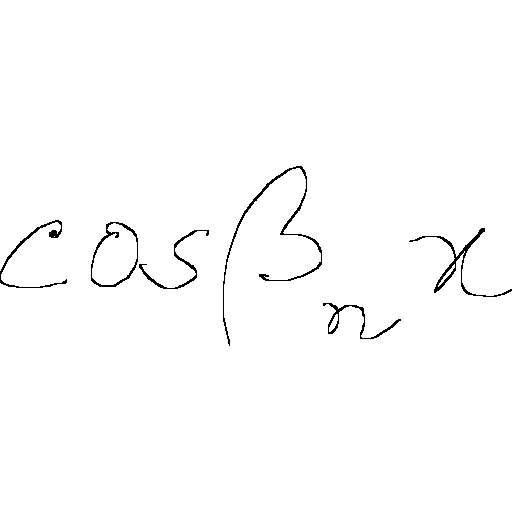 cos βₙ x